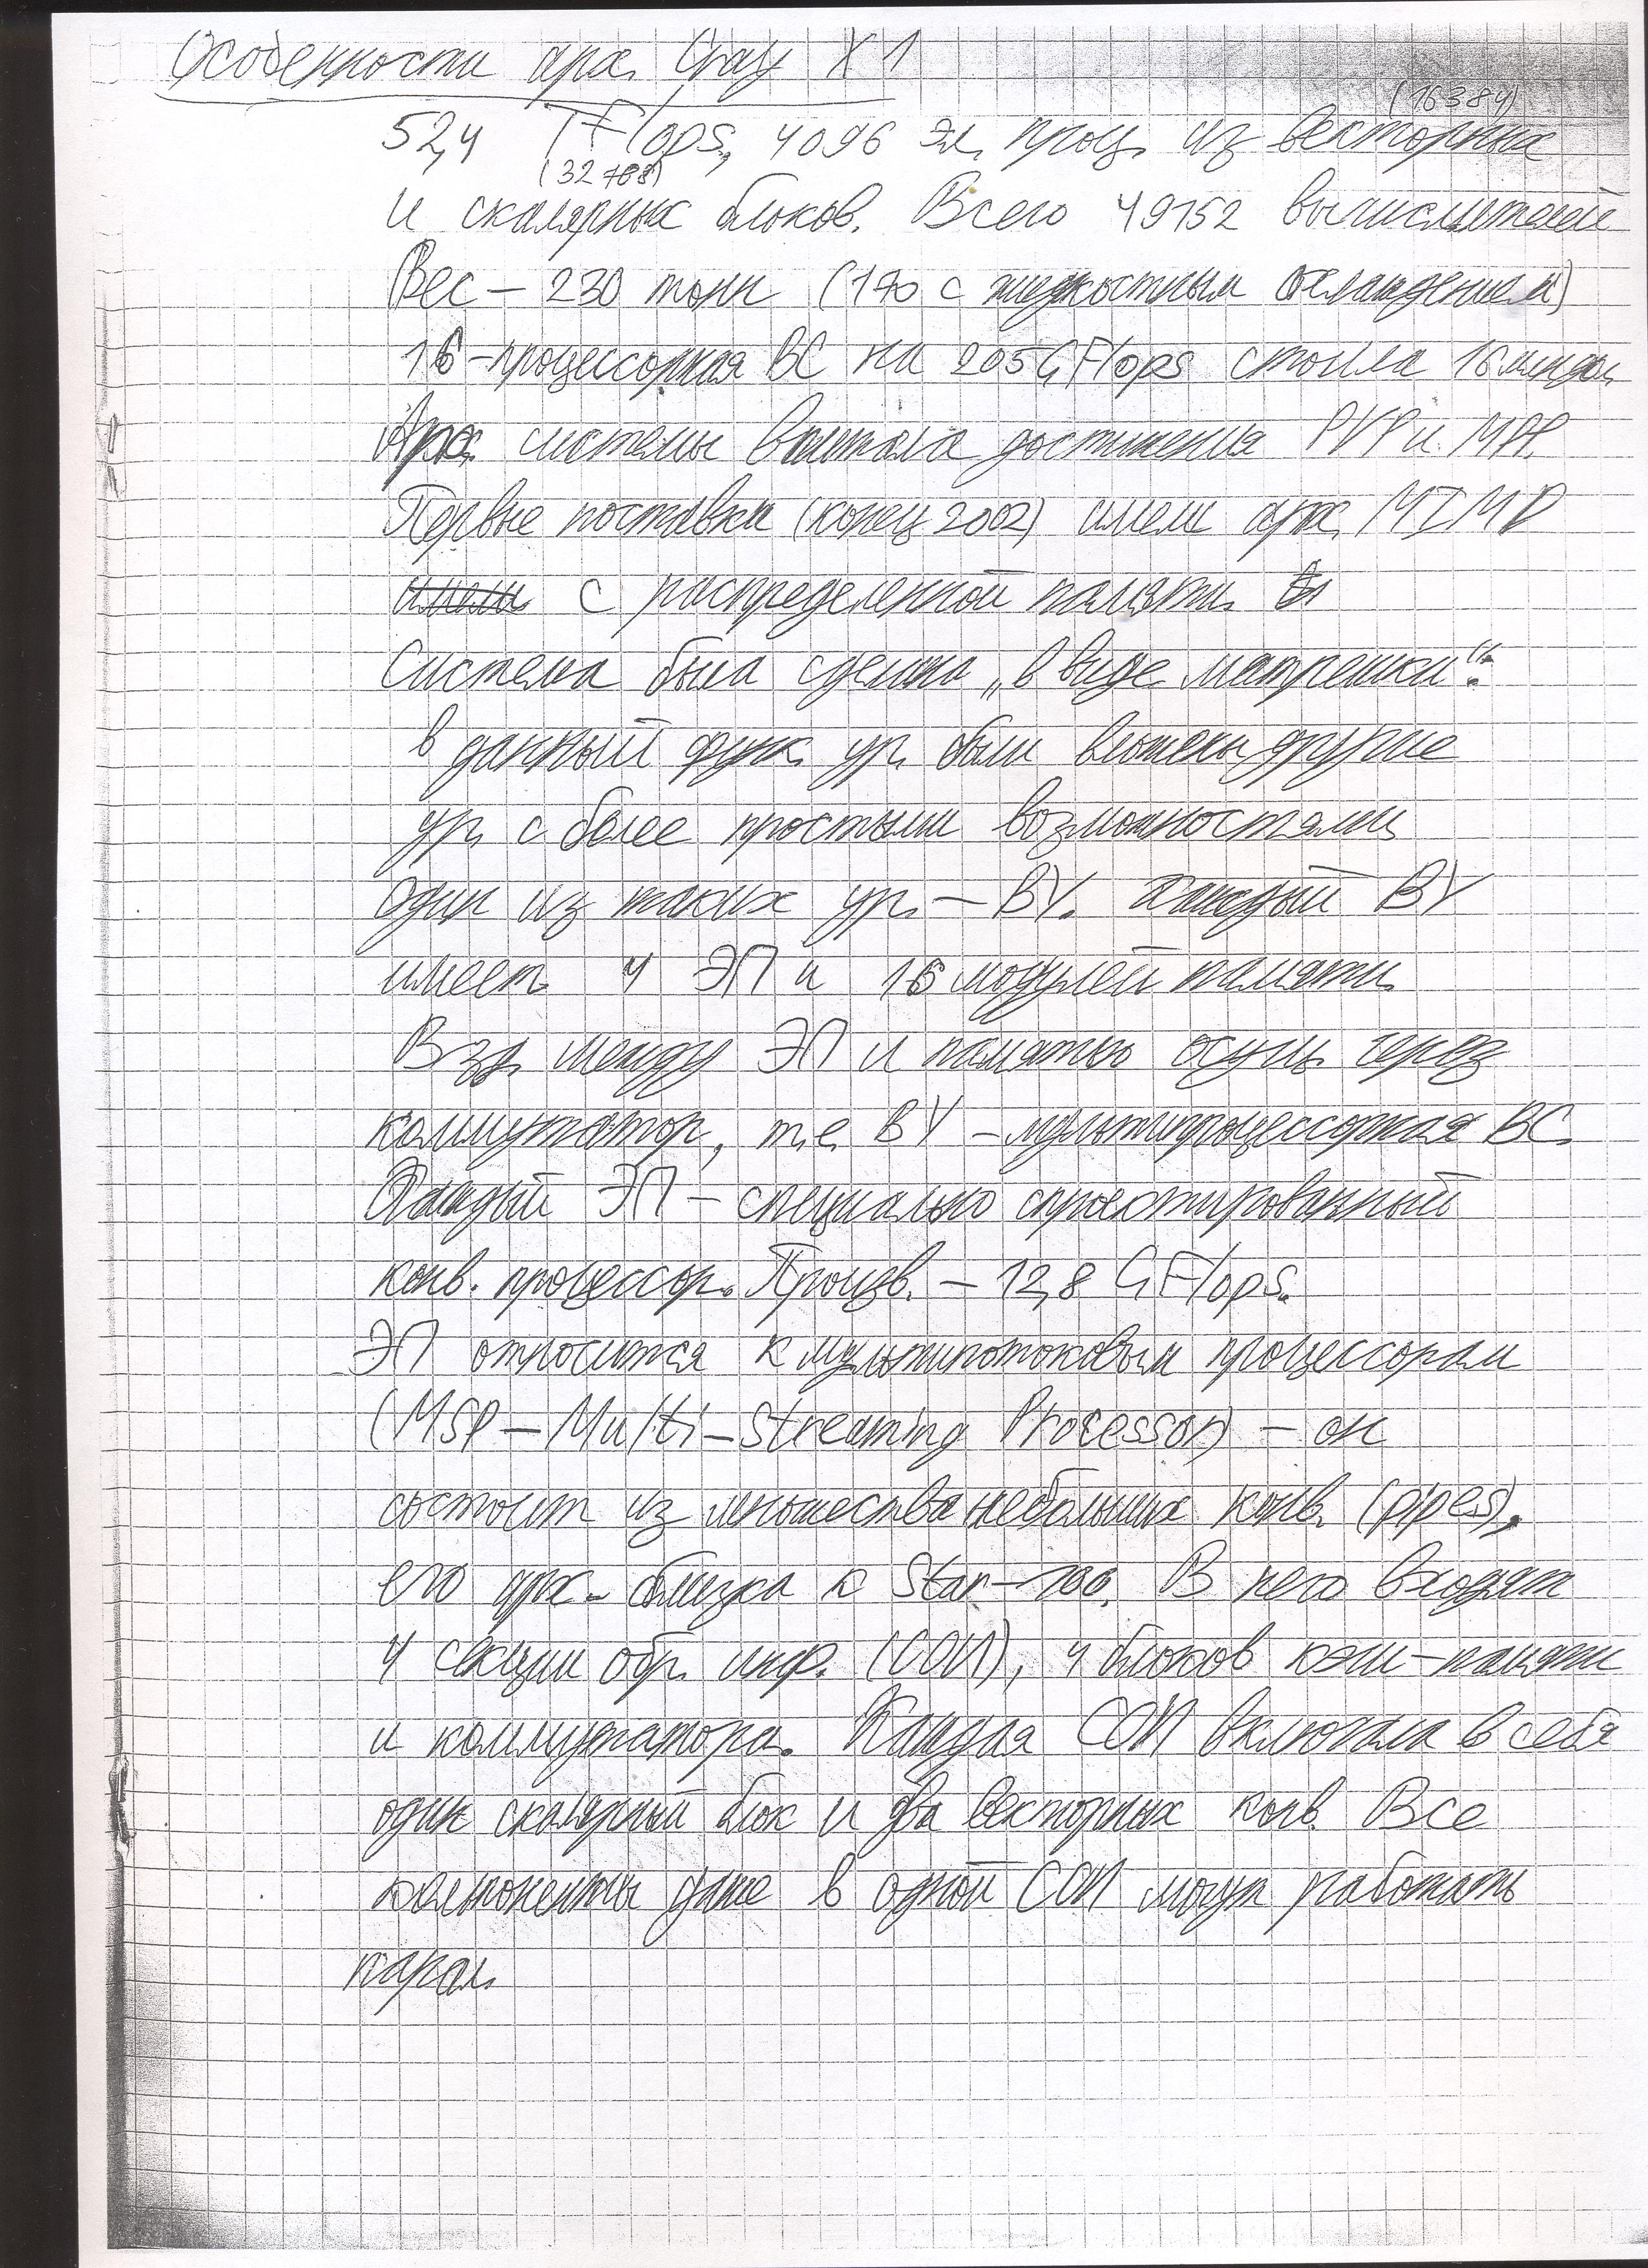 Особенности арх. Cray X1
(16384)
52,4 TFlops, 4096 эл. проц. из векторных
(32768)
и скалярных блоков. Всего 49152 вычислителей
Вес – 230 тонн (170 с жидкостным охлаждением)
16-процессорная ВС на 205 GFlops стоила 16 млн дол.
Арх. системы впитала достижения PVP и MPP.
Первые поставки (конец 2002) имели арх. MIMD
имели с распределенной памятью.
Система была сделана „в виде матрешки“:
в данный функ. ур. были вложены другие
ур. с более простыми возможностями
Один из таких ур. – ВУ. Каждый ВУ
имеет 4 ЭП и 16 модулей памяти.
Взд. между ЭП и памятью осущ. через
коммутатор, т.е. ВУ – мультипроцессорная ВС.
Каждый ЭП – специально спроектированный
конв. процессор. Произв. – 12,8 GFlops.
ЭП относится к мультипотоковым процессорам
(MSP – Multi-Streaming Processor) – он
состоит из множества небольших конв. (pipes),
его арх. близка к Star-100. В него входят
4 секции обр. инф. (СОИ), 4 блоков кэш-памяти
и коммутатора. Каждая СОИ включала в себя
один скалярный блок и два векторных конв. Все
компоненты даже в одной СОИ могут работать
парал.